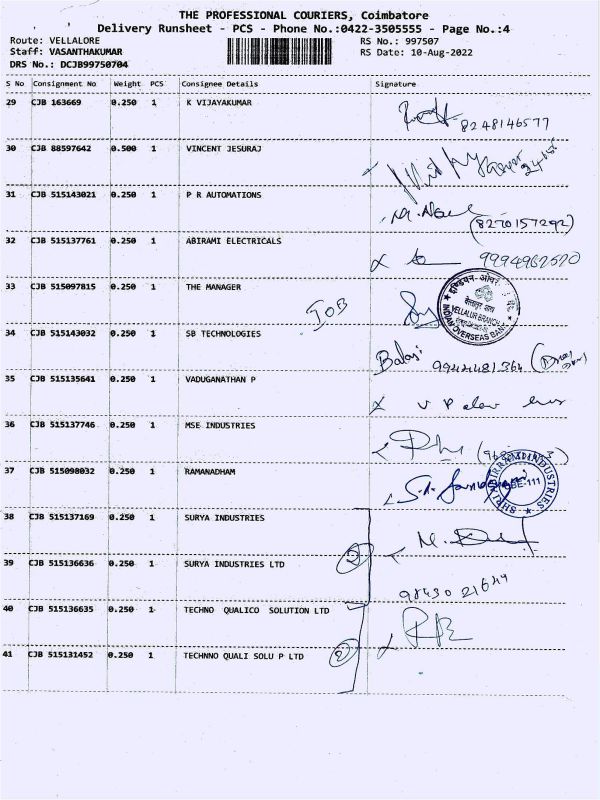 THE PROFESSIONAL COURIERS, Coimbatore
Delivery Runsheet - PCS - Phone No.:0422-3505555 - Page No.:4
Route: VELLALORE RS No.: 997507
Staff: VASANTHAKUMAR RS Date: 10-Aug-2022
DRS No.: DCJB99750704
S No Consignment No Weight PCS Consignee Details Signature
29 CJB 163669 0.250 1 K VIJAYAKUMAR
8248146577
30 CJB 88597642 0.500 1 VINCENT JESURAJ
31 CJB 515143021 0.250 1 P R AUTOMATIONS
(8270157292)
32 CJB 515137761 0.250 1 ABIRAMI ELECTRICALS
9994962520
33 CJB 515097815 0.250 1 THE MANAGER
IOB
VELLALUR BRANCH
INDIAN OVERSEAS BANK
34 CJB 515143032 0.250 1 SB TECHNOLOGIES
Balaji 9944481364
35 CJB 515135641 0.250 1 VADUGANATHAN P
36 CJB 515137746 0.250 1 MSE INDUSTRIES
37 CJB 515098032 0.250 1 RAMANADHAM
38 CJB 515137169 0.250 1 SURYA INDUSTRIES
39 CJB 515136636 0.250 1 SURYA INDUSTRIES LTD
2
98430 21644
40 CJB 515136635 0.250 1 TECHNO QUALICO SOLUTION LTD
41 CJB 515131452 0.250 1 TECHNNO QUALI SOLU P LTD
2